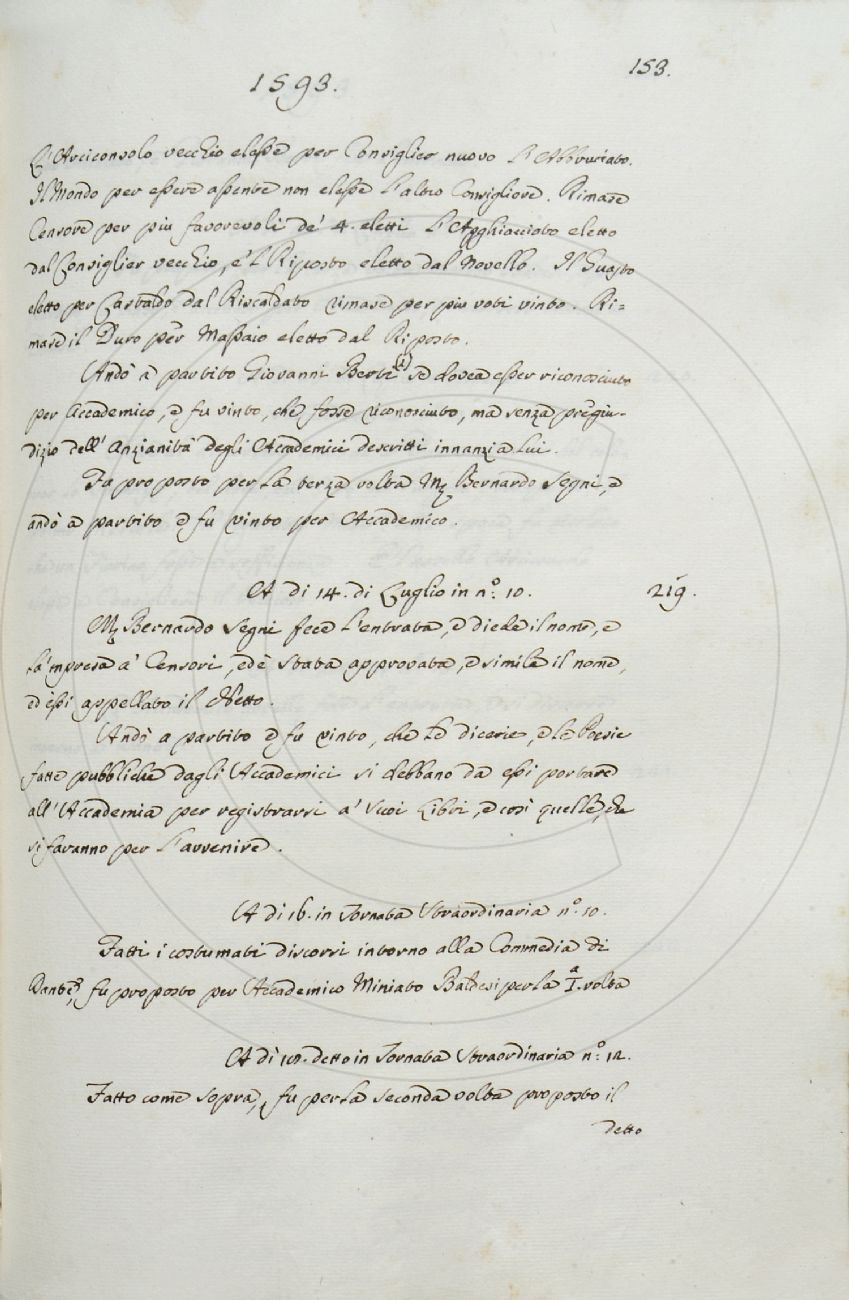 153.
1593.
L'Arciconsolo vecchio elesse per Consiglier nuovo l'Abbruciato.
Il Mondo per essere assente non elesse l'altro Consigliere. Rimase
Censore per più favorevoli de' 4. eletti l'Agghiacciato eletto
dal Consiglier vecchio, e 'l Riposto eletto dal Novello. Il Guasto
eletto per Castaldo dal Riscaldato rimase per più voti vinto. Ri=
mase il Duro per Massaio eletto dal Riposto.
Andò a partito Giovanni Berti (1) se dovea esser riconosciuto
per Accademico, e fu vinto, che fosse riconosciuto, ma senza pregiu-
dizio dell'Anzianità degli Accademici descritti innanzi a lui.
Fu proposto per la terza volta Mr. Bernardo Segni, e
andò a partito e fu vinto per Accademico.
A di 14. di Luglio in n.o 10.
219.
Mr. Bernardo Segni fece l'entrata, e diede il nome, e
la 'mpresa a' Censori, ed è stata approvata, e simile il nome,
ed èssi appellato il Netto.
Andò a partito e fu vinto, che le dicerie, e le Poesie
fatte pubbliche dagli Accademici si debbano da essi portare
all'Accademia per registrarsi a' suoi Libri, e così quelle, che
si faranno per l'avvenire.
A di 16. in Tornata Straordinaria n.o 10.
Fatti i costumati discorsi intorno alla Commedia di
Dante, fu proposto per Accademico Miniato Baldesi per la I.a volta
A di detto in Tornata Straordinaria n.o 12.
Fatto come sopra, fu per la seconda volta proposto il
detto